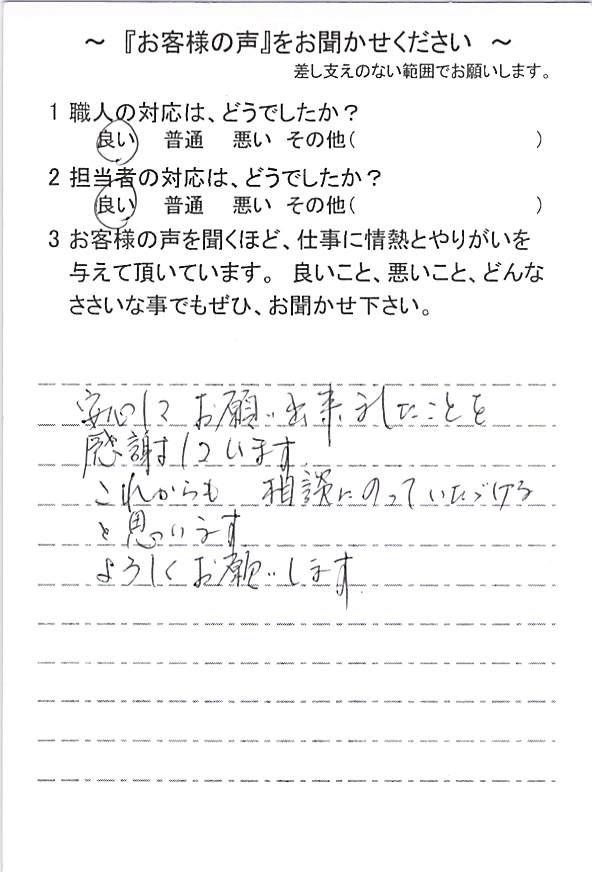 ～ 『お客様の声』をお聞かせください ～
差し支えのない範囲でお願いします。
1 職人の対応は、どうでしたか？
良い 普通 悪い その他( )
2 担当者の対応は、どうでしたか？
良い 普通 悪い その他( )
3 お客様の声を聞くほど、仕事に情熱とやりがいを
与えて頂いています。 良いこと、悪いこと、どんな
ささいな事でもぜひ、お聞かせ下さい。
安心して お願い出来ましたことを
感謝しています
これからも 相談にのっていただける
と思います
よろしくお願いします